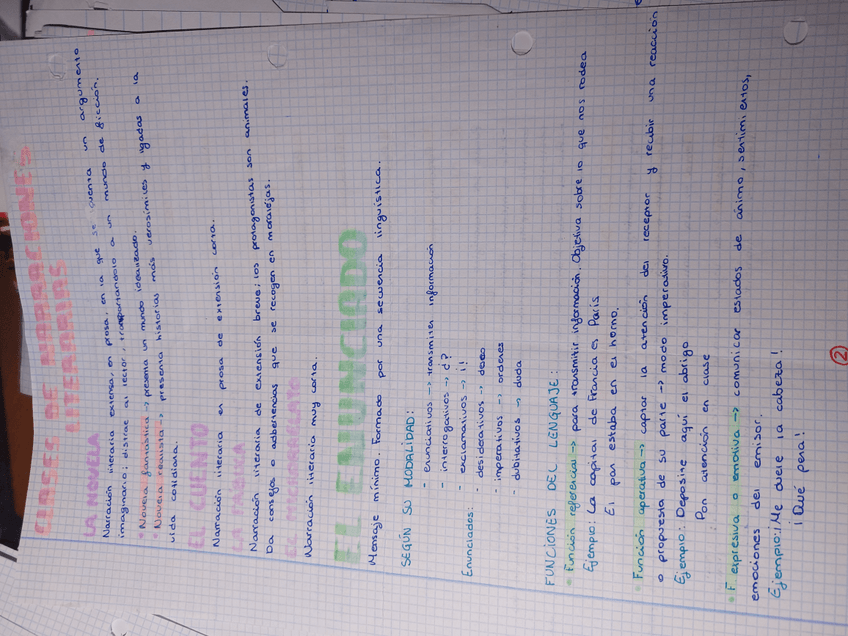 CLASES DE NARRACIONES
LITERARIAS
LA NOVELA
Narración literaria extensa, en prosa, en la que se cuenta un argumento
imaginario; distrae al lector, transportandolo a un mundo de ficción.
* Novela fantástica -> presenta un mundo idealizado.
* Novela realista -> presenta historias más verosímiles y ligadas a la
vida cotidiana.
EL CUENTO
Narración literaria en prosa de extensión corta.
LA FÁBULA
Narración literaria de extensión breve; los protagonistas son animales.
Da consejos o adbertencias que se recogen en moralejas.
EL MICRORRELATO
Narración literaria muy corta.
EL ENUNCIADO
Mensaje mínimo. Formado por una secuencia lingüística.
SEGÚN SU MODALIDAD:
- enunciativos -> transmiten información
- interrogativos -> ¿?
- exclamativos -> ¡!
Enunciados: - desiderativos -> deseo
- imperativos -> ordenes
- dubitativos -> duda
FUNCIONES DEL LENGUAJE:
* Función referencial -> para transmitir información. Objetiva sobre lo que nos rodea
Ejemplo: La capital de Francia es París
El pan estaba en el horno.
* Función apelativa -> captar la atención del receptor y recibir una reacción
o propuesta de su parte -> modo imperativo.
Ejemplo: Deposite aquí el abrigo
Pon atención en clase
* F. expresiva o emotiva -> comunicar estados de ánimo, sentimientos,
emociones del emisor.
Ejemplo: ¡Me duele la cabeza!
¡Qué pena!
2